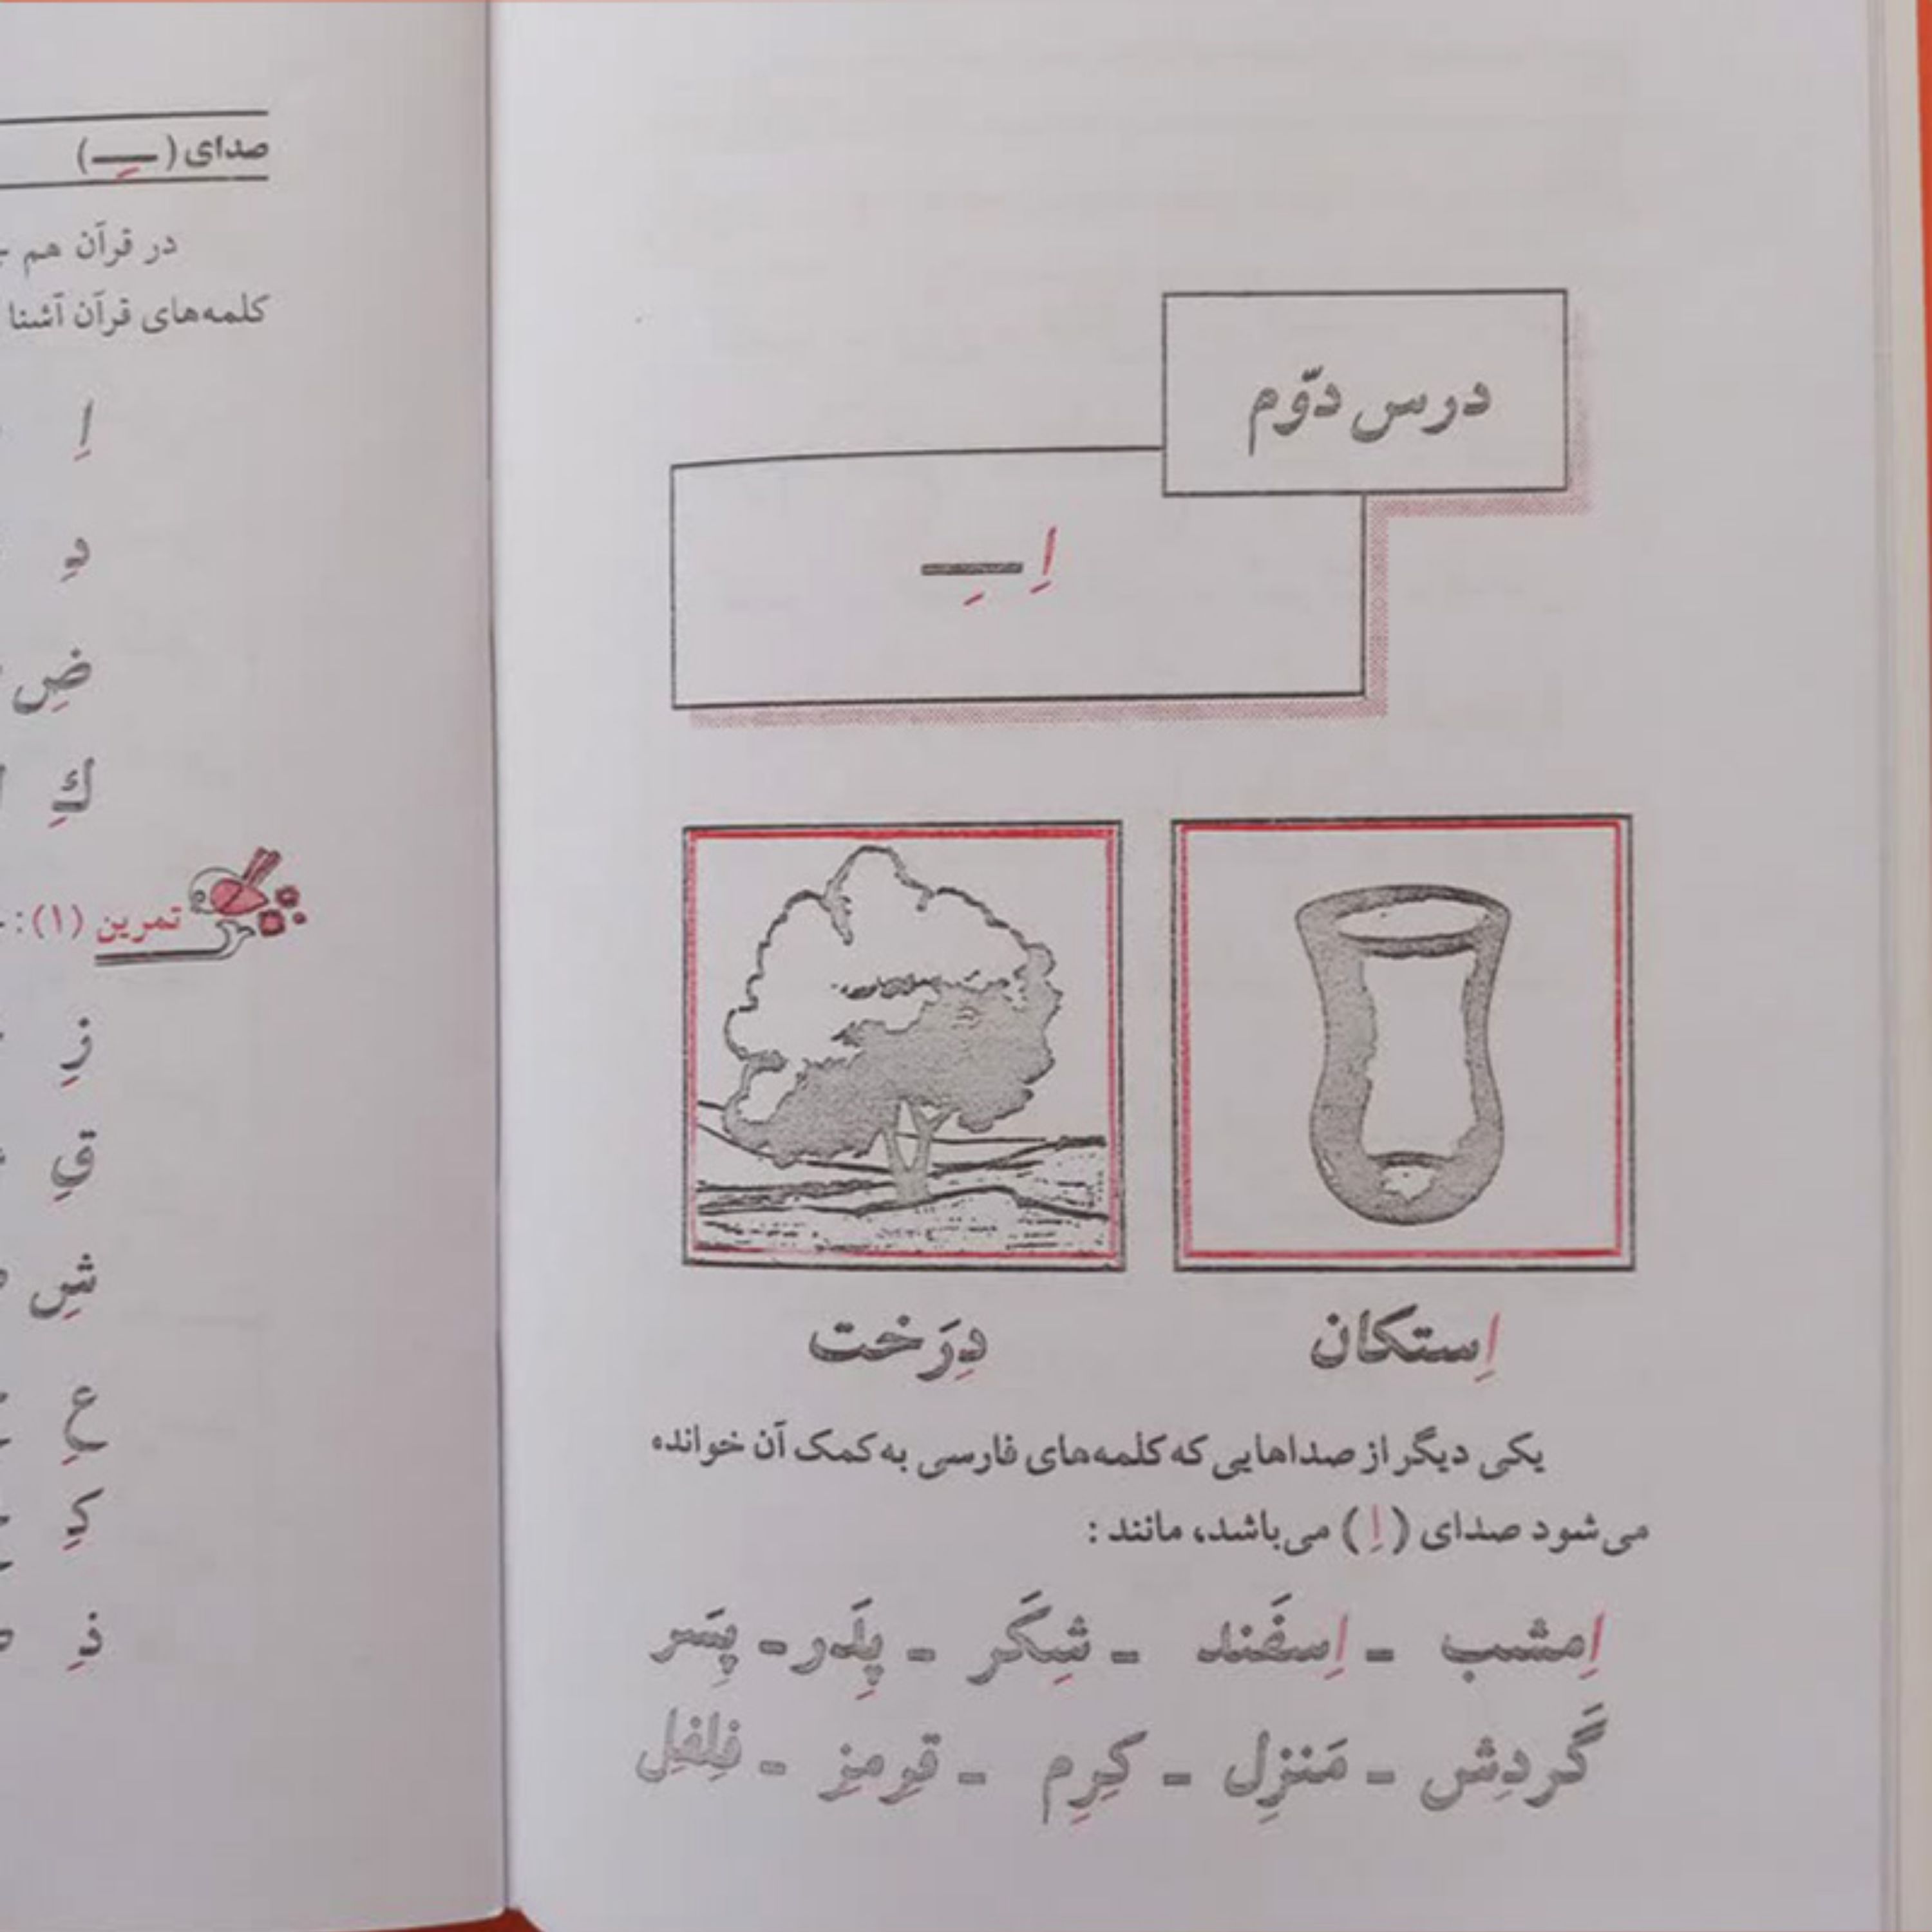 درس دوّم
اِ ـِ
اِستکان
دِرَخت
یکی دیگر از صداهایی که کلمه‌های فارسی به کمک آن خوانده
می‌شود صدای (اِ) می‌باشد، مانند :
اِمشب - اِسفَند - شِکَر - پِدَر - پِسَر
گَردِش - مَنزِل - کِرِم - قِرمِز - فِلفِل
صدای (ـِ)
در قرآن هم
کلمه‌های قرآن آشنا
اِ
دِ
ضِ
كِ
تمرین (۱):
زِ
قِ
شِ
عِ
کِ
ذِ